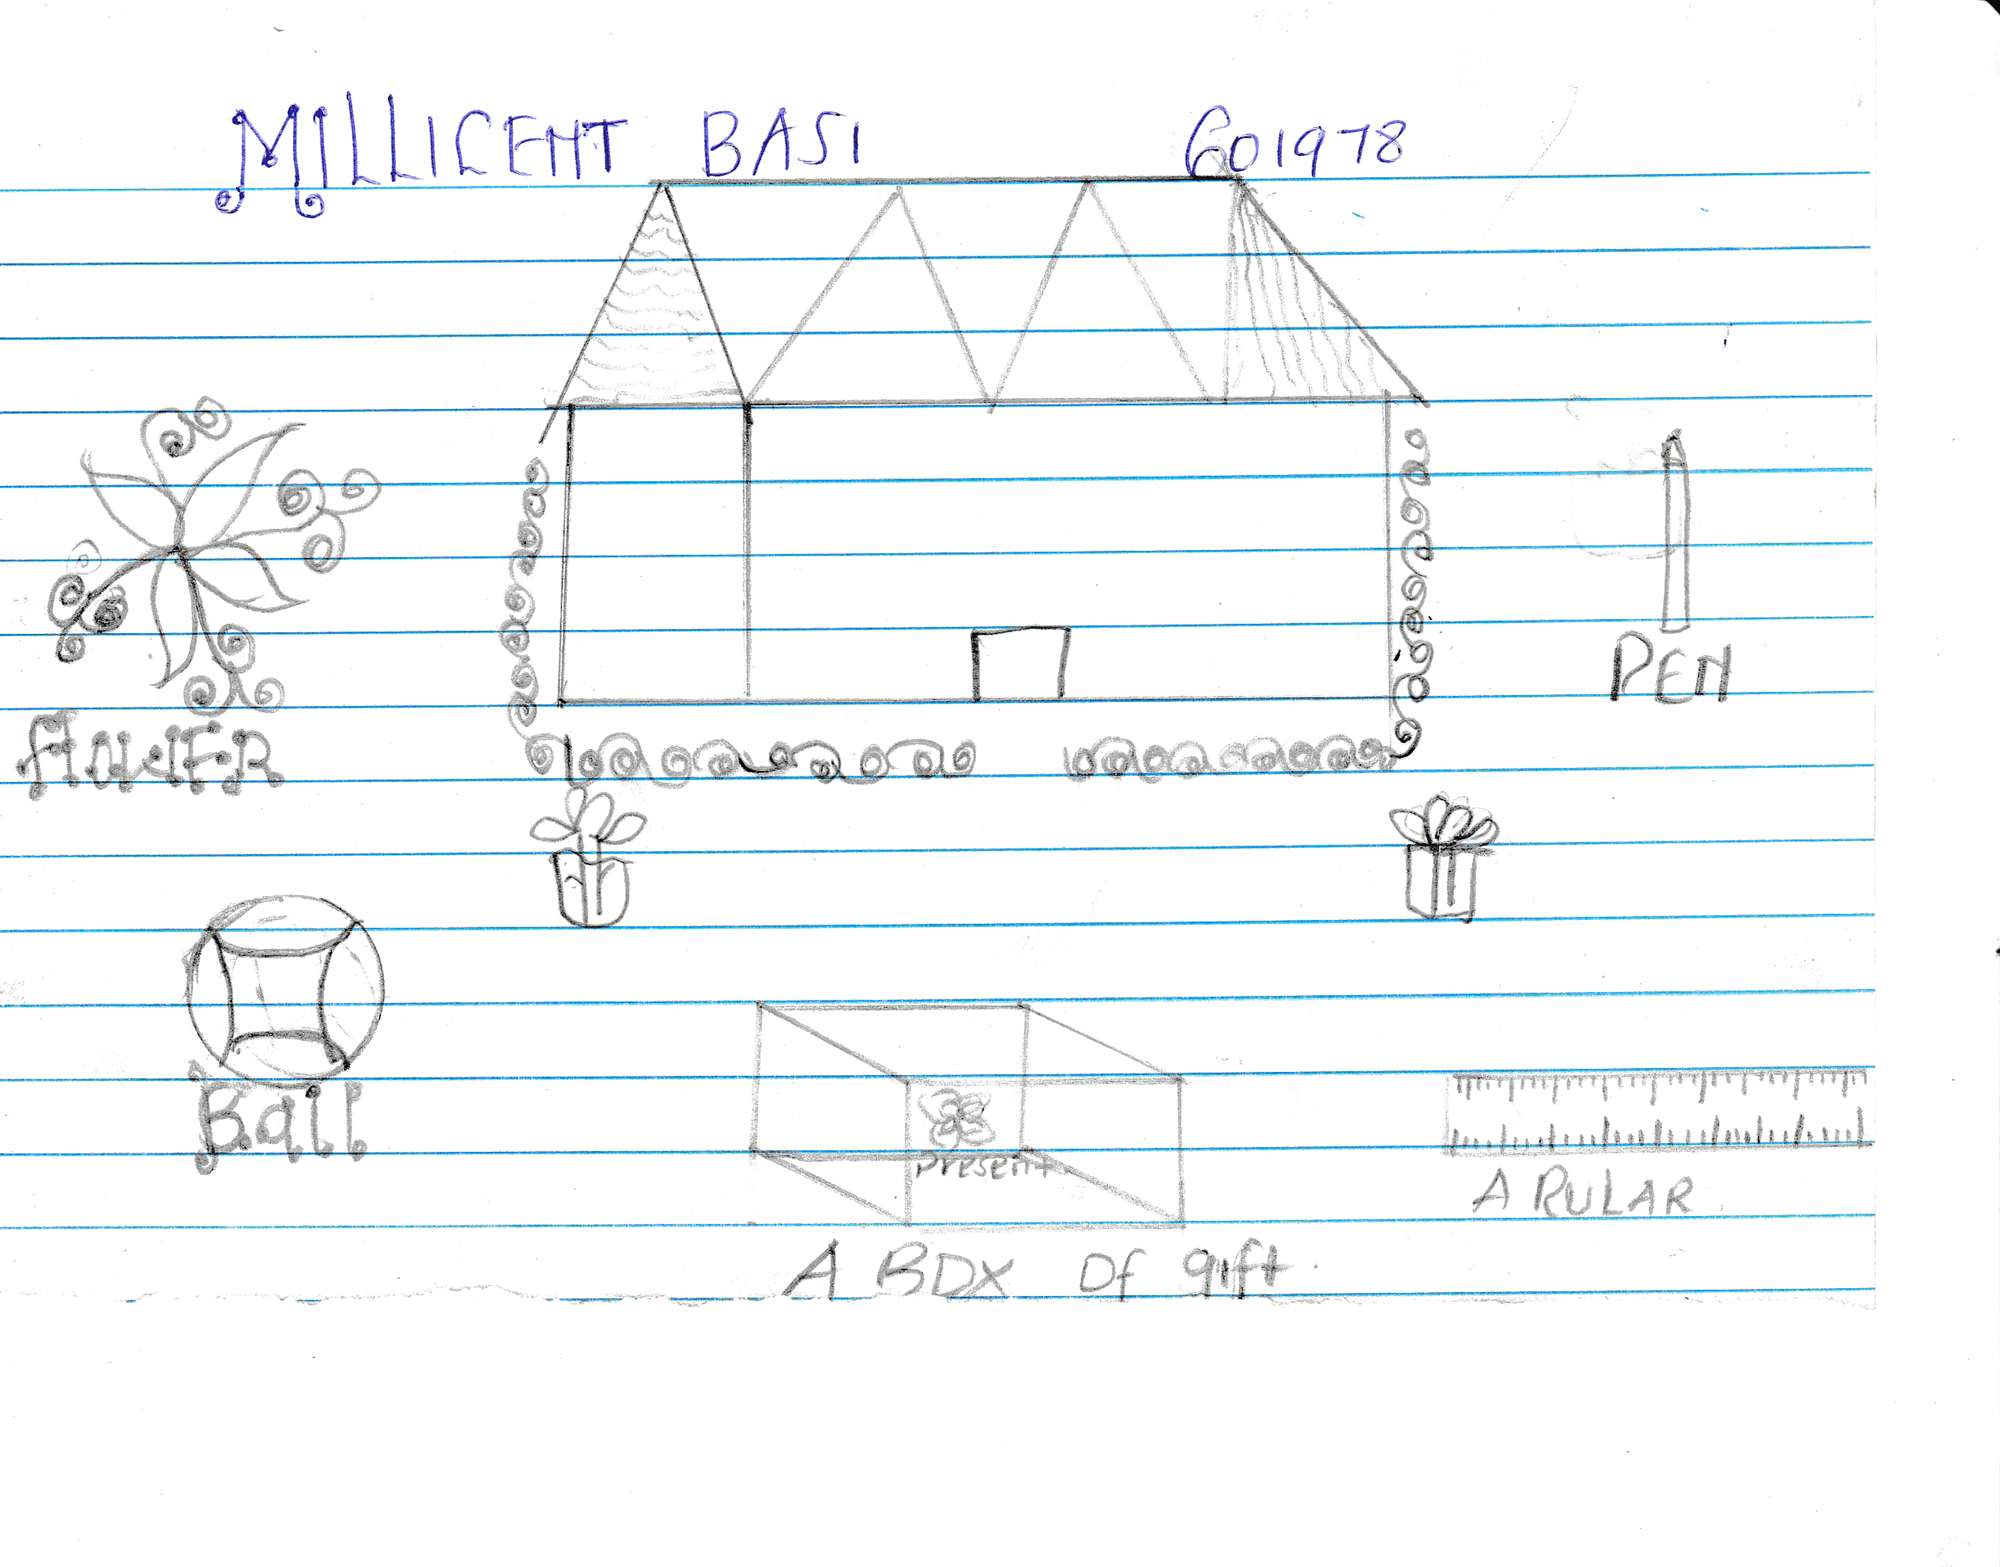 MILLICENT BASI 601978
PEN
FlOWER
Ball
present
A RULAR
A BOX Of gift.